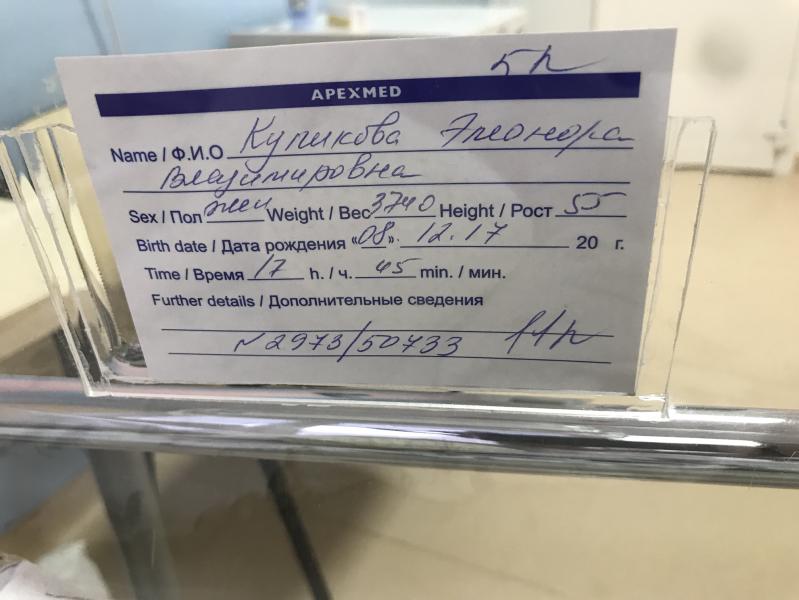 5п
APEXMED
Name / Ф.И.О Куликова Элеонора
Владимировна
Sex / Пол жен Weight / Вес 3740 Height / Рост 55
Birth date / Дата рождения «08». 12.17 20 г.
Time / Время 17 h. / ч. 45 min. / мин.
Further details / Дополнительные сведения
N 2973/50733